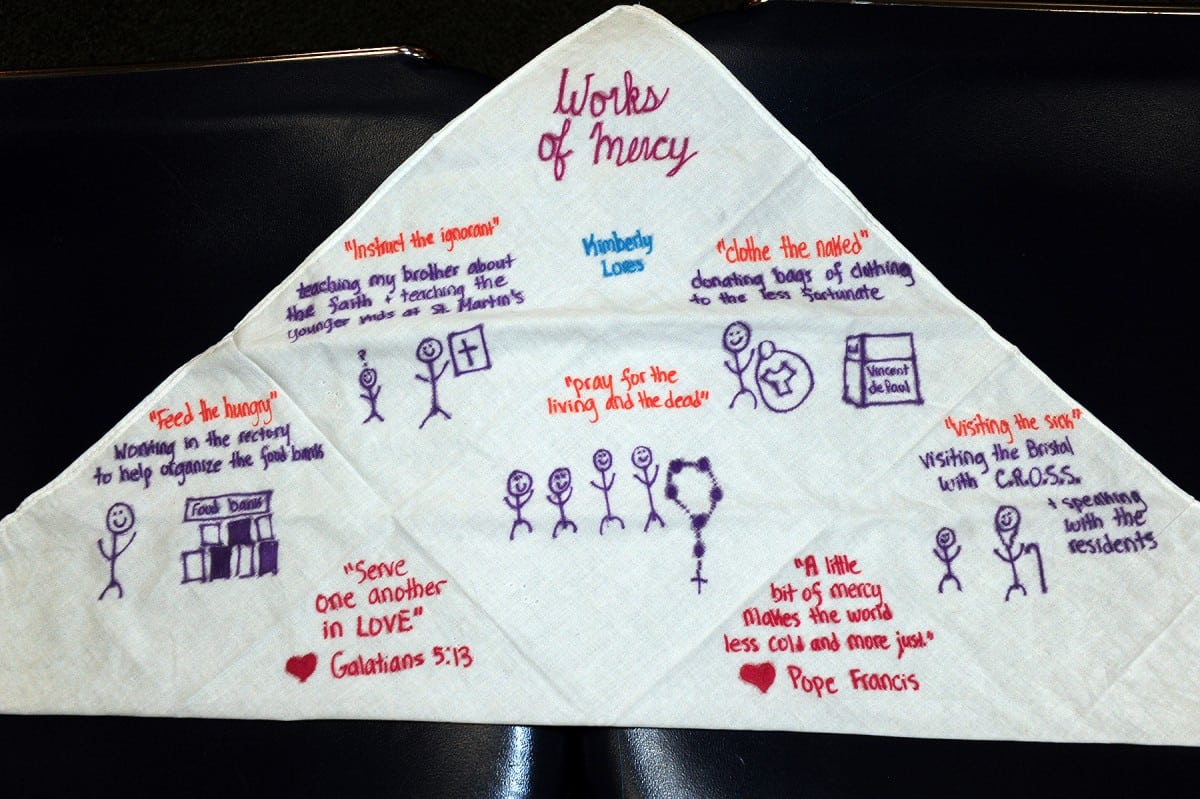 Works
of Mercy
"Instruct the ignorant"
teaching my brother about
the faith + teaching the
younger kids at St. Martin's
?
Kimberly
Loves
"clothe the naked"
donating bags of clothing
to the less fortunate
Vincent
de Paul
"Feed the hungry"
Working in the rectory
to help organize the food bank
Food bank
"pray for the
living and the dead"
"Visiting the sick"
visiting the Bristal
with C.R.O.S.S.
+ speaking
with the
residents
"Serve
one another
in LOVE"
Galatians 5:13
"A little
bit of mercy
makes the world
less cold and more just."
Pope Francis